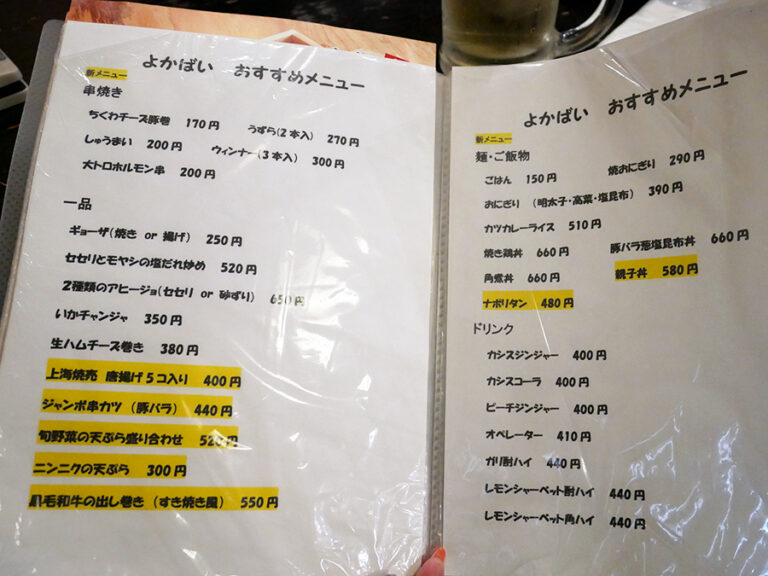 よかばい おすすめメニュー
新メニュー
串焼き
ちくわチーズ豚巻 170円 うずら(2本入) 270円
しゅうまい 200円 ウィンナー(3本入) 300円
大トロホルモン串 200円
一品
ギョーザ(焼き or 揚げ) 250円
セセリとモヤシの塩だれ炒め 520円
2種類のアヒージョ(セセリ or 砂ずり) 650円
いかチャンジャ 350円
生ハムチーズ巻き 380円
上海焼売 唐揚げ5コ入り 400円
ジャンボ串カツ (豚バラ) 440円
旬野菜の天ぷら盛り合わせ 520円
ニンニクの天ぷら 300円
黒毛和牛の出し巻き (すき焼き風) 550円
よかばい おすすめメニュー
新メニュー
麺・ご飯物
ごはん 150円 焼おにぎり 290円
おにぎり (明太子・高菜・塩昆布) 390円
カツカレーライス 510円
焼き鶏丼 660円 豚バラ葱塩昆布丼 660円
角煮丼 660円 親子丼 580円
ナポリタン 480円
ドリンク
カシスジンジャー 400円
カシスコーラ 400円
ピーチジンジャー 400円
オペレーター 410円
ガリ酎ハイ 440円
レモンシャーベット酎ハイ 440円
レモンシャーベット角ハイ 440円